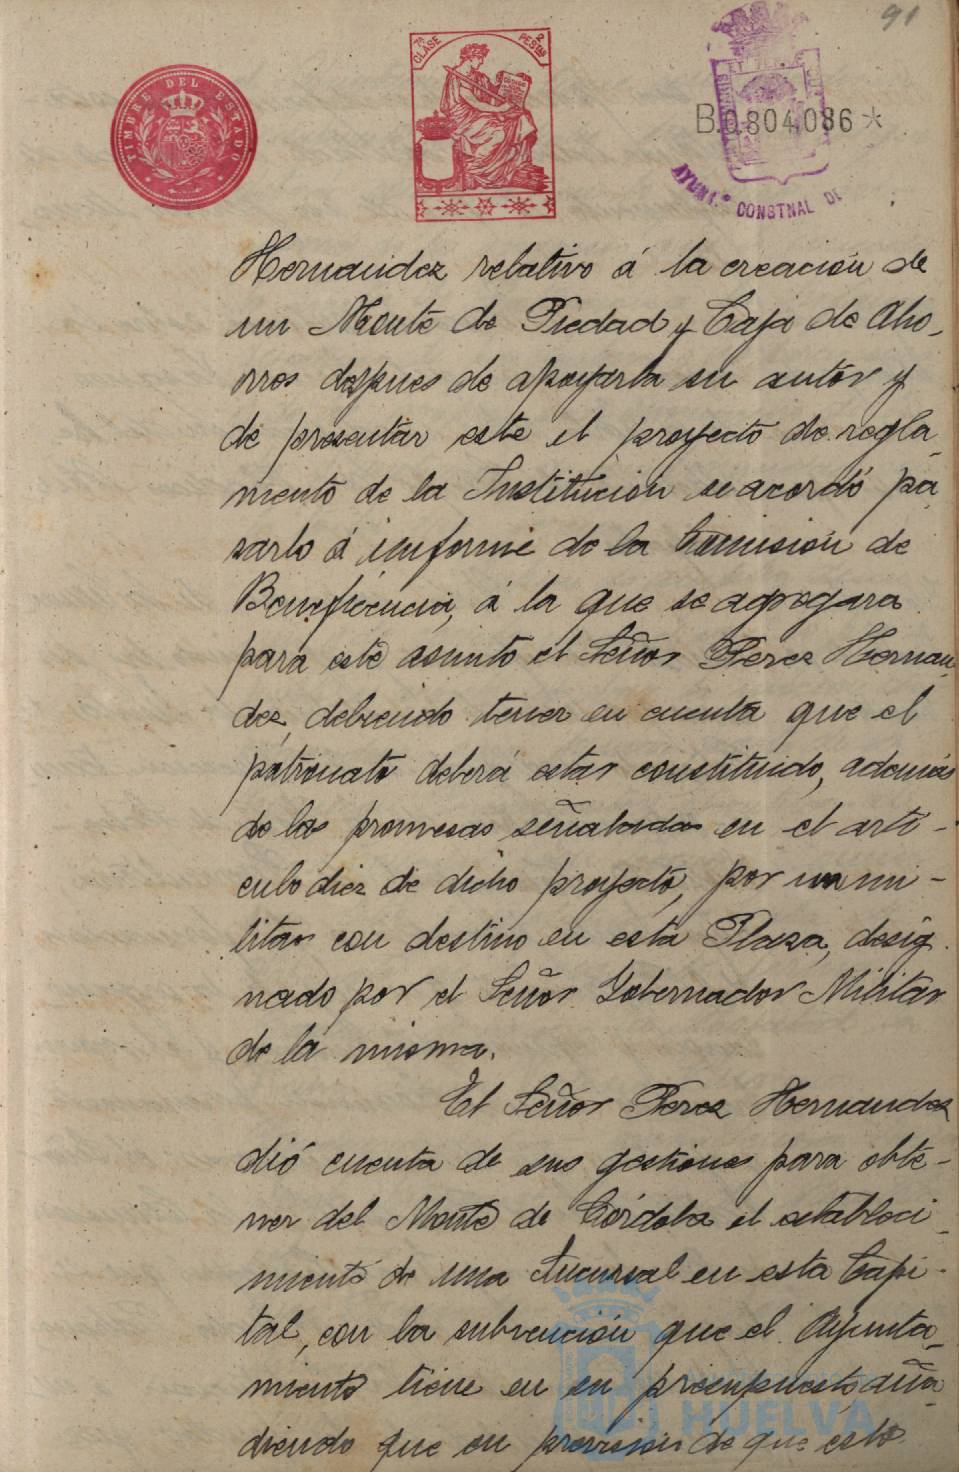 91
TIMBRE DEL ESTADO
7ª CLASE 2 PESTAS
B.0.804.086*
AYUNT.º CONSTNAL DE
Hernandez relativo á la creación de
un Monte de Piedad y Caja de Aho-
rros despues de apoyarla su autor y
de presentar este el proyecto de regla-
mento de la Institucion se acordó pa-
sarlo á informe de la Comisión de
Beneficencia, á la que se agregara
para este asunto el Señor Perez Hernan-
dez, debiendo tener en cuenta que el
patronato deberá estar constituido, además
de las promesas señaladas en el arti-
culo diez de dicho proyecto, por un mi-
litar con destino en esta Plaza, desig-
nado por el Señor Gobernador Militar
de la misma.
El Señor Perez Hernandez
dió cuenta de sus gestiones para obte-
ner del Monte de Córdoba el estableci-
miento de una Sucursal en esta Capi-
tal, con la subvención que el Ayunta-
miento tiene en su presupuesto, aña-
diendo que en prevision de que esto
HUELVA